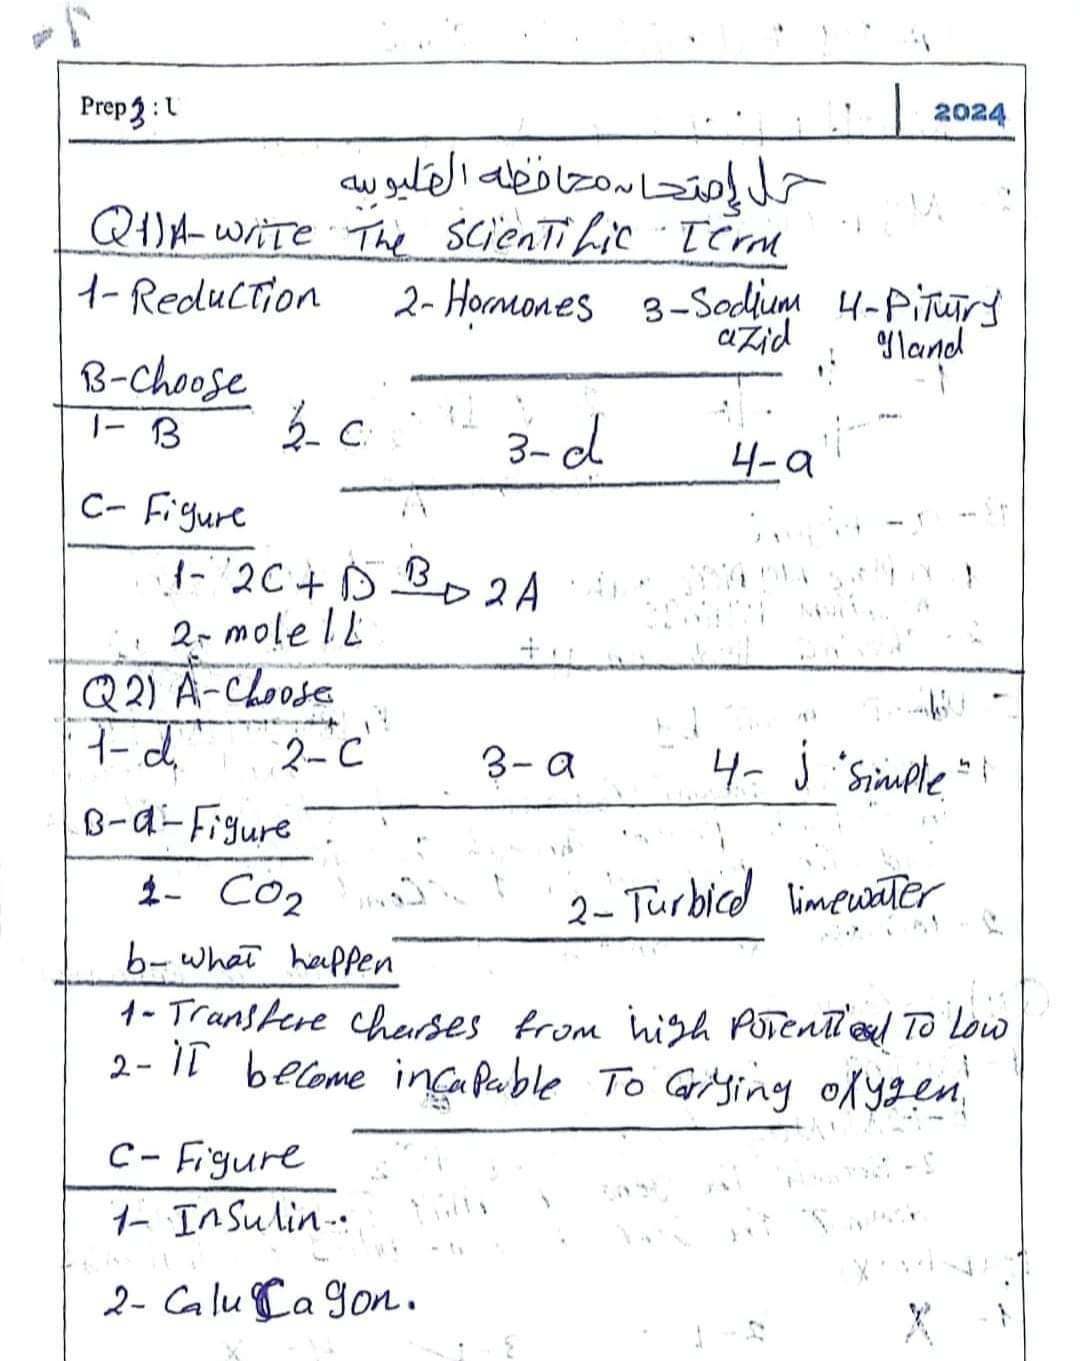 Prep 3 : L 2024
حل إمتحان محافظه القليوبيه
Q1) A- write The Scientific Term
1- Reduction 2- Hormones 3- Sodium azid 4- Pitutry gland
B- Choose
1- B 2- C 3- d 4- a
C- Figure
1- 2C + D B→ 2A
2- mole / L
Q2) A- Choose
1- d 2- C 3- a 4- j "Simple"
B- a- Figure
1- CO2 2- Turbied limewater
b- what happen
1- Transfere charges from high Potential To Low
2- iT become incapable To Carrying oxygen.
C- Figure
1- Insulin..
2- Calucagon.